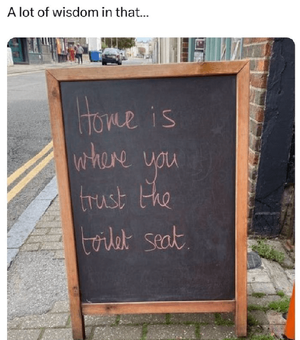 A lot of wisdom in that...
Home is
where you
trust the
toilet seat.